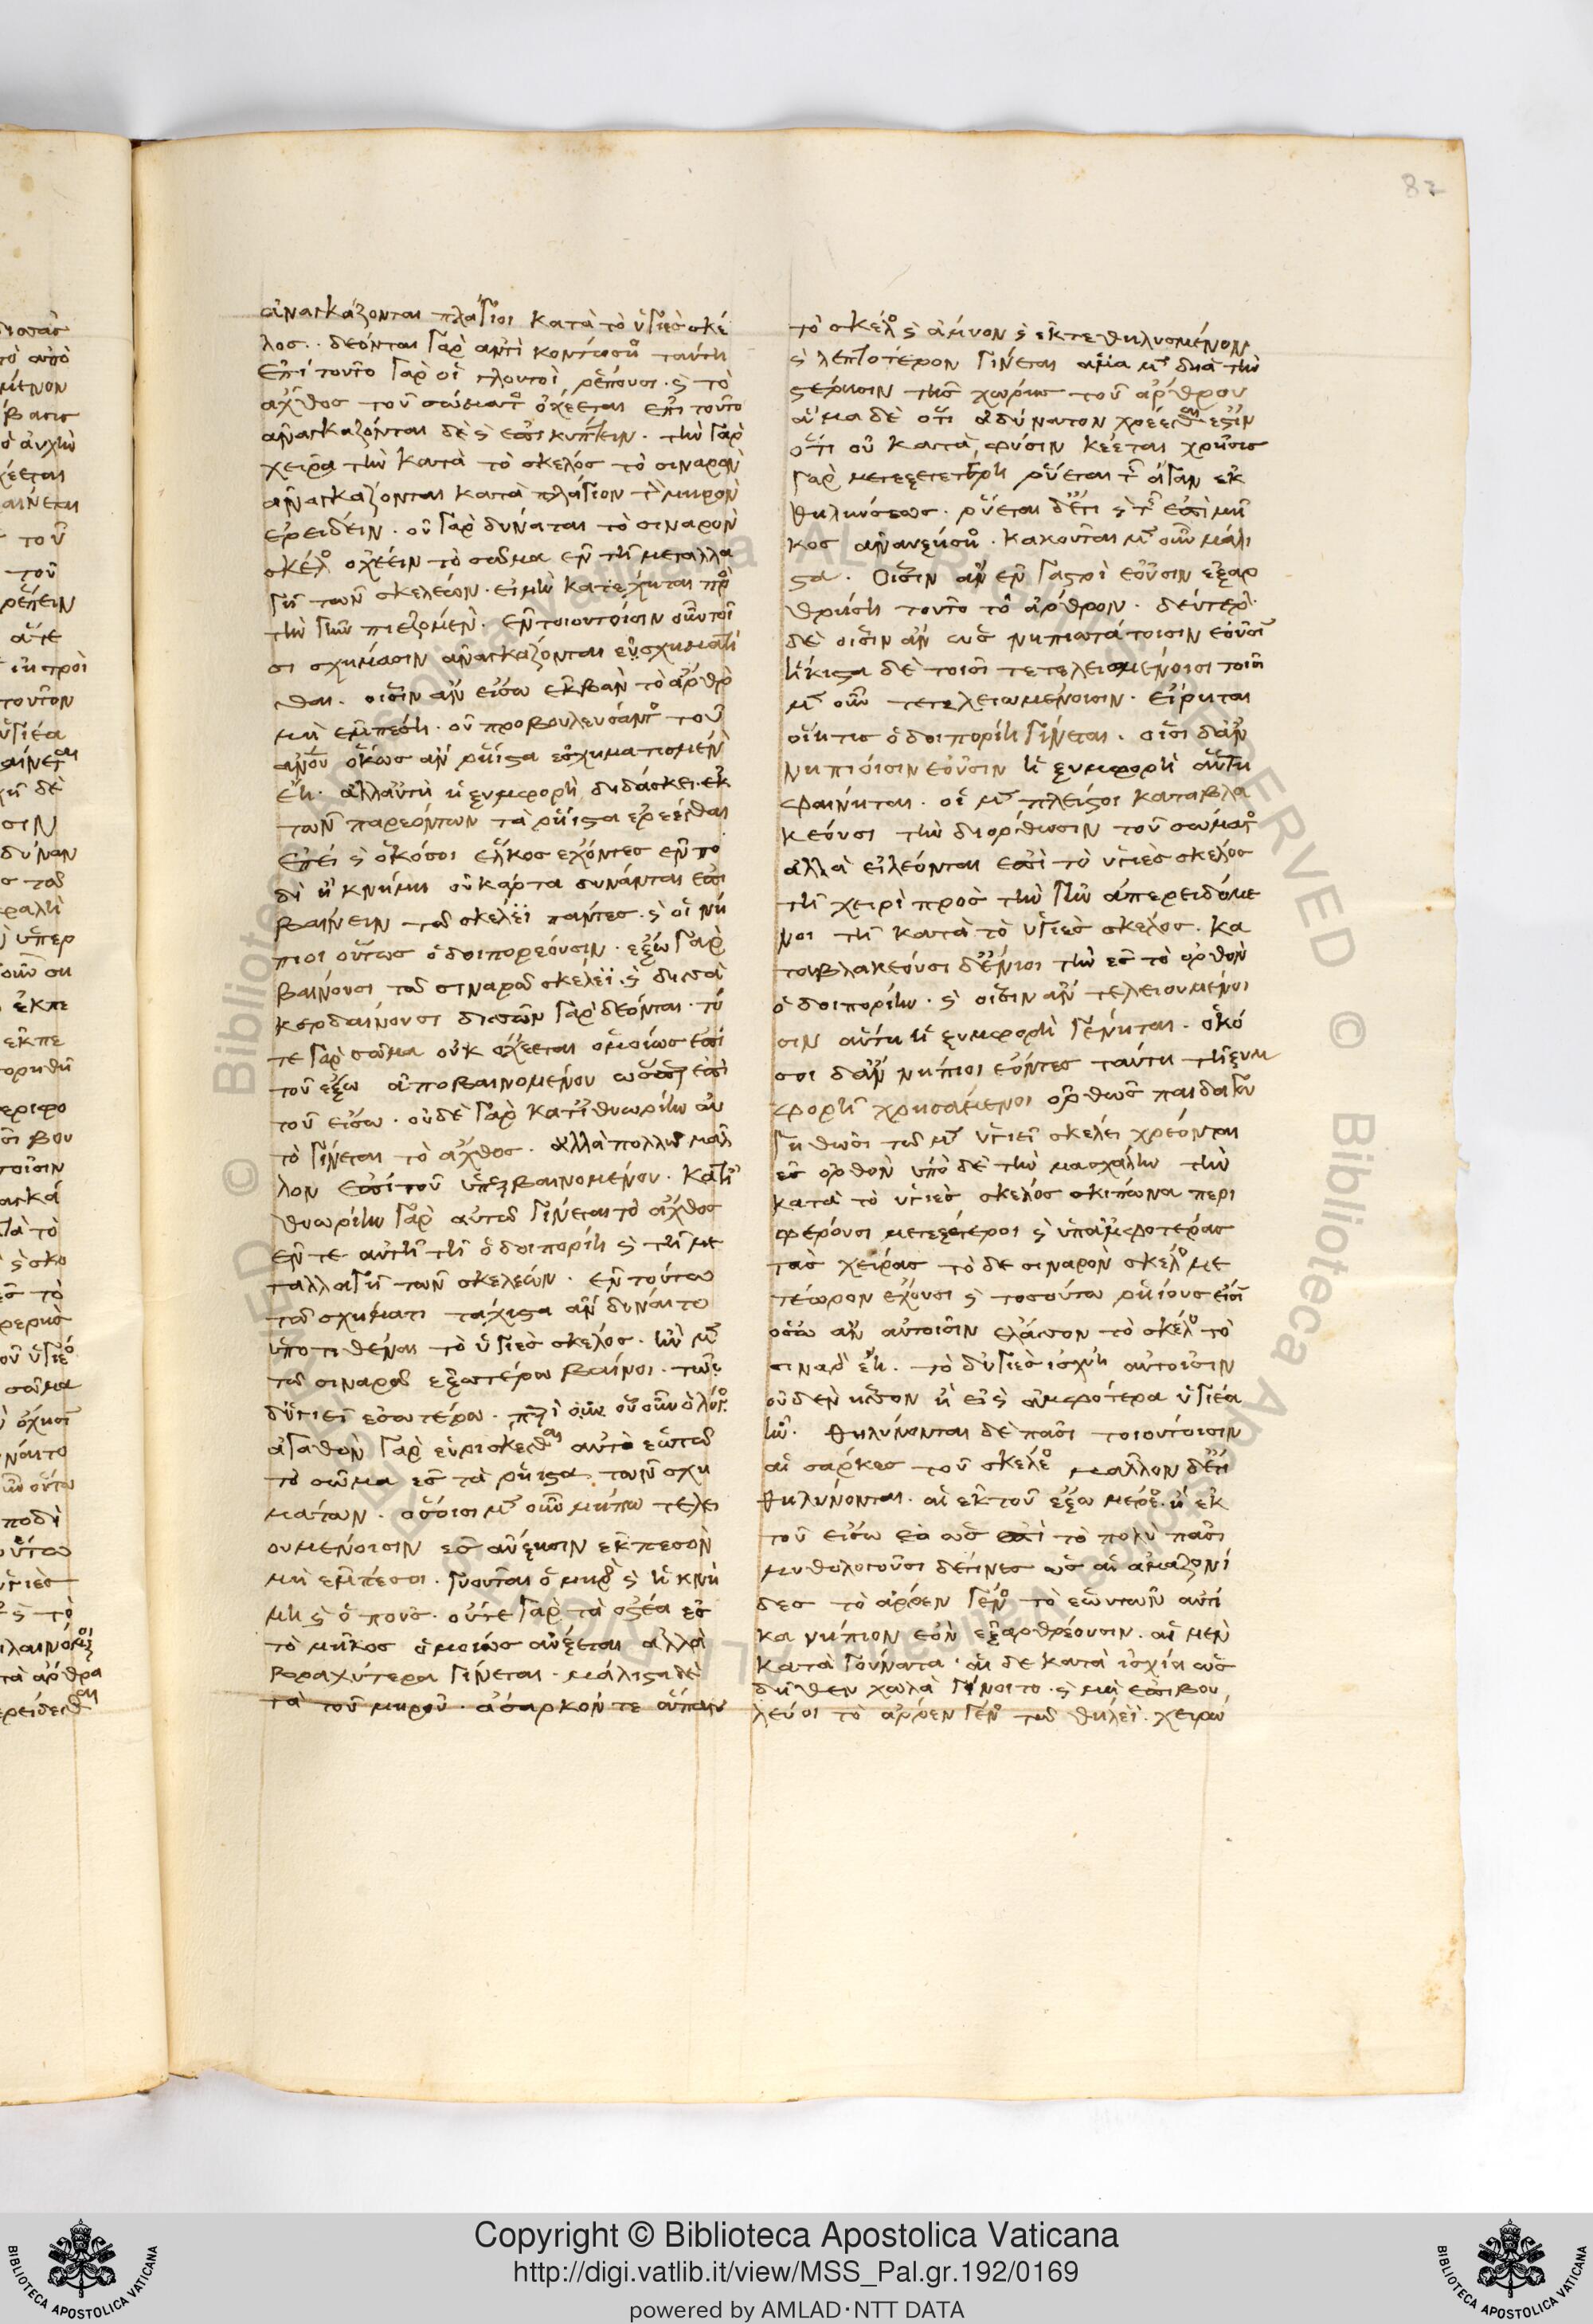 82
ἀναγκάζονται πλάγιοι κατὰ τὸ ὑγιὲς σκέ
λος. δέονται γὰρ ἀντικοντώσιος ταύτη
ἐπὶ τοῦτο γὰρ οἱ γλουτοὶ ῥέπουσι. ϛ τὸ
ἄχθος τοῦ σώματος ὀχέεται ἐπὶ τοῦτο
ἀναγκάζονται δὲ ϛ ἐπικύπτειν. τὴν γὰρ
χεῖρα τὴν κατὰ τὸ σκέλος τὸ σιναρὸν
ἀναγκάζονται κατὰ πλάγιον τὸν μηρὸν
ἐρείδειν. οὐ γὰρ δύναται τὸ σιναρὸν
σκέλος ὀχέειν τὸ σῶμα ἐν τῆ μεταλλα
γῆ τῶν σκελέων. εἰ μὴ κατέχηται πρὸς
τὴν γῆν πιεζομένον. ἐν τοιουτοῖσιν οὖν τοῖ
σι σχήμασιν ἀναγκάζονται ἐσχηματί
σθαι. οἷσιν ἂν εἴσω ἐκβὰν τὸ ἄρθρον
μὴ ἐμπέση. οὐ προβουλεύσαντος τοῦ
ἀνου ὅκως ἂν ῥήϊστα ἐσχηματισμένον
ἔη. ἀλλ αὐτὴ ἡ ξυμφορὴ διδάσκει ἐκ
τῶν παρεόντων τὰ ῥήϊστα αἱρέεσθαι
ἐπεὶ ϛ ὁκόσοι ἕλκος ἔχοντες ἐν πο
δὶ ἢ κνήμη οὐ κάρτα δύνανται ἐπι
βαίνειν τῶ σκέλεϊ πάντες. ϛ οἱ νή
πιοι οὕτως ὁδοιπορέουσιν. ἔξω γὰρ
βαίνουσι τῶ σιναρῶ σκέλεϊ. ϛ δισσὰ
κερδαίνουσι δισσῶν γὰρ δέονται. τό
τε γὰρ σῶμα οὐκ ὀχέεται ὁμοίως ἐπὶ
τοῦ ἔξω ἀποβαινομένου ὥσπερ ἐπὶ
τοῦ εἴσω. οὐδὲ γὰρ κατ ἰθυωρίην αὐ
τὸ γίνεται τὸ ἄχθος. ἀλλὰ πολλῶ μᾶλ
λον ἐπὶ τοῦ ὑπερβαινομένου. κατ ἰ
θυωρίην γὰρ αὐτῶ γίνεται τὸ ἄχθος
ἔν τε αὐτῆ τῆ ὁδοιπορίη ϛ τῆ με
ταλλαγῆ τῶν σκελέων. ἐν τούτω
τῶ σχήματι τάχιστα ἂν δύναιτο
ὑποτιθέναι τὸ ὑγιὲς σκέλος. ἢν μὲν
τῶ σιναρῶ ἐξωτέρω βαίνοι. τῶ
δ ὑγιεῖ ἐσωτέρω. περὶ οὗ οὖν ὁ λόγος
ἀγαθὸν γὰρ εὑρίσκεσθαι αὐτὸ ἑωυτῶ
τὸ σῶμα ἐς τὰ ῥήϊστα τῶν σχη
μάτων. ὁσοισι μὲν οὖν μήπω τελει
ουμένοισιν ἐς αὔξησιν ἐκπεσὸν
μὴ ἐμπέσοι. γυοῦται ὁ μηρὸς ϛ ἡ κνή
μη ϛ ὁ ποῦς. οὔτε γὰρ τὰ ὀστέα ἐς
τὸ μῆκος ὁμοίως αὔξεται ἀλλὰ
βραχύτερα γίνεται. μάλιστα δὲ
τὰ τοῦ μηροῦ. ἄσαρκόν τε ἅπαν
τὸ σκέλος ϛ ἄμυον ϛ ἐκτεθηλυσμένον
ϛ λεπτότερον γίνεται ἅμα μὲν διὰ τὴν
στέρησιν τῆς χώρης τοῦ ἄρθρου
ἅμα δὲ ὅτι ἀδύνατον χρέεσθαι ἐστὶν
ὅτι οὐ κατὰ φύσιν κέεται χρῆσις
γὰρ μετεξετέρη ῥύεται τῆς ἄγαν ἐκ
θηλύνσεως. ῥύεται δέ τι ϛ τῆς ἐπὶ μῆ
κος ἀναυξήσιος. κακοῦται μὲν οὖν μάλι
στα. Οἷσιν ἂν ἐν γαστρὶ ἐοῦσιν ἐξαρ
θρήση τοῦτο τὸ ἄρθρον. δεύτερον
δὲ οἷσιν ἂν ὡς νηπιωτάτοισιν ἐοῦσι
ἥκιστα δὲ τοῖσι τετελειωμένοισι τοῖσι
μὲν οὖν τετελειωμένοισιν. εἴρηται
οἵη τις ὁδοιπορίη γίνεται. οἷσι δ ἂν
νηπίοισιν ἐοῦσιν ἡ ξυμφορὴ αὕτη
φαίνηται. οἱ μὲν πλεῖστοι καταβλα
κεύουσι τὴν διόρθωσιν τοῦ σώματος
ἀλλὰ εἰλέονται ἐπὶ τὸ ὑγιὲς σκέλος
τῆ χειρὶ πρὸς τὴν γῆν ἀπερειδόμε
νοι τῆ κατὰ τὸ ὑγιὲς σκέλος. κα
ταβλακεύουσι δ ἔνιοι τὴν ἐς τὸ ὀρθὸν
ὁδοιπορίην. ϛ οἷσιν ἂν τελειουμένοι
σιν αὕτη ἡ ξυμφορὴ γένηται. ὁκό
σοι δ ἂν νήπιοι ἐόντες ταύτη τῆ ξυμ
φορῆ χρησάμενοι ὀρθῶς παιδαγω
γηθῶσι τῶ μὲν ὑγιεῖ σκέλει χρέονται
ἐς ὀρθὸν ὑπὸ δὲ τὴν μασχάλην τὴν
κατὰ τὸ ὑγιὲς σκέλος σκίπωνα περι
φέρουσι μετεξέτεροι ϛ ὑπ ἀμφοτέρας
τὰς χεῖρας τὸ δὲ σιναρὸν σκέλος με
τέωρον ἔχουσι ϛ τοσούτω ῥηΐους εἰσὶ
ὅσω ἂν αὐτοῖσιν ἔλασσον τὸ σκέλος τὸ
σιναρὸν ἔη. τὸ δ ὑγιὲς ἰσχύη αὐτοῖσιν
οὐδὲν ἧσσον ἢ εἰ ϛ ἀμφότερα ὑγιέα
ἦν. θηλύνονται δὲ πᾶσι τοιουτοῖσιν
αἱ σάρκες τοῦ σκέλεος μᾶλλον δέ τι
θηλύνονται. αἱ ἐκ τοῦ ἔξω μέρεος. ἢ ἐκ
τοῦ εἴσω ὡς ἐπὶ τὸ πολὺ πᾶσι
μυθολογοῦσι δέ τινες ὡς αἱ ἀμαζονί
δες τὸ ἄρσεν γένος τὸ ἑωυτῶν αὐτί
κα νήπιον ἐὸν ἐξαρθρέουσιν. αἱ μὲν
κατὰ γούνατα. αἱ δὲ κατὰ ἰσχία ὡς
δῆθεν χωλὰ γίνοιτο. ϛ μὴ ἐπιβου
λεύοι τὸ ἄρρεν γένος τῶ θήλεϊ. χειρω
Copyright © Biblioteca Apostolica Vaticana
http://digi.vatlib.it/view/MSS_Pal.gr.192/0169
powered by AMLAD·NTT DATA
BIBLIOTECA APOSTOLICA VATICANA
BIBLIOTECA APOSTOLICA VATICANA